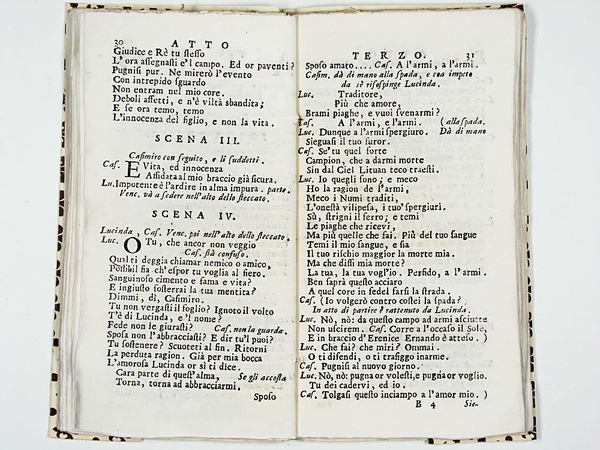 30 ATTO
Giudice e Rè tu stesso
L'ora assegnasti e'l campo. Ed or paventi?
Pugnisi pur. Ne mirerò l'evento
Con intrepido sguardo
Non entram nel mio core.
Deboli affetti, e n'è viltà sbandita;
E se ora temo, temo
L'innocenza del figlio, e non la vita.
SCENA III.
Casimiro con seguito, e li suddetti.
Cas. E Vita, ed innocenza
Affidata al mio braccio già sicura.
Lu. Impotente è l'ardire in alma impura. parte.
Venc. và a sedere nell'alto dello steccato.
SCENA IV.
Lucinda, Cas. Venc. poi nell'alto dello steccato.
Luc. O Tu, che ancor non veggio
Cas. stà confuso.
Qual ti deggia chiamar nemico o amico,
Possibil fia ch'espor tu voglia al fiero.
Sanguinoso cimento e fama e vita?
E ingiusto sosterrai la tua mentita?
Dimmi, dì, Casimiro.
Tu non vergasti il foglio? Ignoto il volto
T'è di Lucinda, e'l nome?
Fede non le giurasti? Cas. non la guarda.
Sposa non l'abbracciasti? E dir tu'l puoi?
Tu sostenere? Scuoteti al fin. Ritorni
La perduta ragion. Già per mia bocca
L'amorosa Lucinda or sì ti dice.
Cara parte di quest'alma, Se gli accosta
Torna, torna ad abbracciarmi.
Sposo
TERZO. 31
Sposo amato.... Cas. A l'armi, a l'armi.
Casim. dà di mano alla spada, e con impeto
da sè risospinge Lucinda.
Luc. Traditore,
Più che amore,
Brami piaghe, e vuoi svenarmi?
Cas. A l'armi, e l'armi. (alla spada.
Luc. Dunque a l'armi spergiuro. Dà di mano
Sieguasi il tuo furor.
Cas. Se'tu quel forte
Campion, che a darmi morte
Sin dal Ciel Lituan teco traesti.
Luc. Io quegli sono; e meco
Ho la ragion de l'armi,
Meco i Numi traditi,
L'onestà vilipesa, i tuo'spergiuri.
Sù, strigni il ferro; e temi
Le piaghe che ricevi,
Ma più quelle che fai. Più del tuo sangue
Temi il mio sangue, e sia
Il tuo rischio maggior la morte mia.
Ma che dissi mia morte?
La tua, la tua vogl'io. Perfido, a l'armi.
Ben saprà questo acciaro
A quel core in fedel farsi la strada.
Cas. (Io volgerò contro costei la spada?
In atto di partire è rattenuto da Lucinda.
Luc. Nò, nò: da questo campo ad armi asciutte
Non uscirem. Cas. Corre a l'occaso il Sole,
E in braccio d'Erenice Ernando è atteso. )
Luc. Che fai? che miri? Ommai.
O ti difendi, o ti trafiggo inarme.
Cas. Pugnisi al nuovo giorno.
Luc. Nò, nò: pugna or volesti, e pugna or voglio.
Tu dei cadervi, ed io.
Cas. Tolgasi questo inciampo a l'amor mio. )
B 4 Sie-